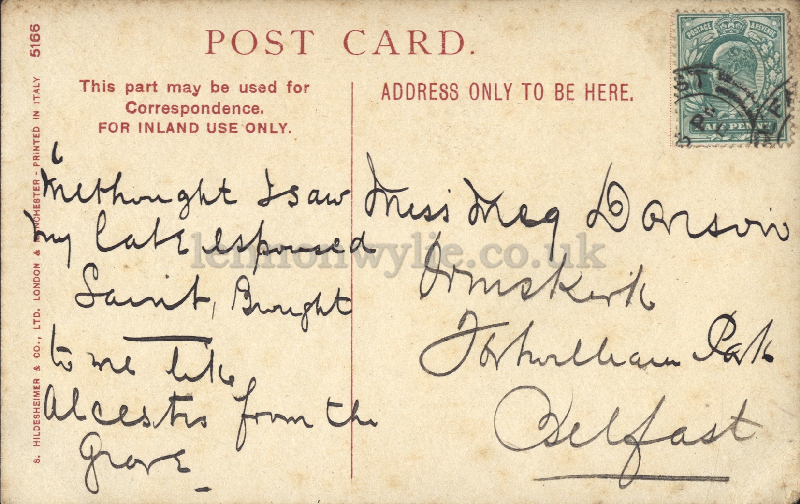 POST CARD.
This part may be used for
Correspondence.
FOR INLAND USE ONLY.
ADDRESS ONLY TO BE HERE.
S. HILDESHEIMER & CO., LTD. LONDON & MANCHESTER - PRINTED IN ITALY 5166
POSTAGE & REVENUE
HALFPENNY
"Methought I saw
my late espoused
Saint, Brought
to me like
Alcestis from the
Grave
Miss Meg
Ormskirk
Fortwilliam Park
Belfast
lennonwylie.co.uk